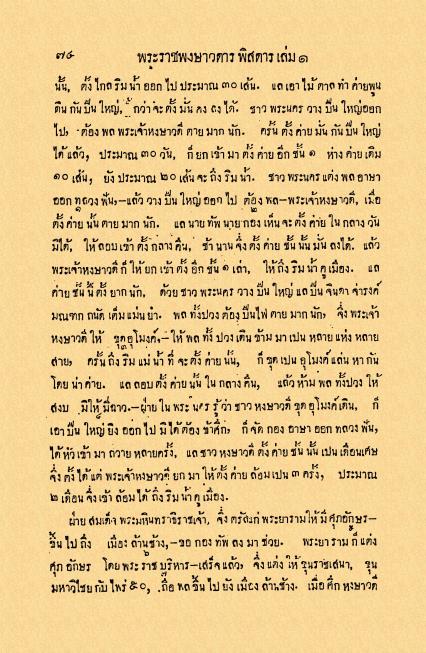 ๗๔ พระราชพงษาวดาร พิสดาร เล่ม ๑
นั้น, ตั้ง ไกล ริม น้ำ ออก ไป ประมาณ ๓๐ เส้น. แล เอา ไม้ ตาล ทำ ค่าย พูน
ดิน กัน ปืน ใหญ่, กว่า จะ ตั้ง มั่น คง ลง ได้. ชาว พระนคร วาง ปืน ใหญ่ ออก
ไป, ต้อง พล พระเจ้า หงษาวดี ตาย มาก นัก. ครั้น ตั้ง ค่าย มั่น กัน ปืน ใหญ่
ได้ แล้ว, ประมาณ ๓๐ วัน, ก็ ยก เข้า มา ตั้ง ค่าย อีก ชั้น ๑ ห่าง ค่าย เดิม
๑๐ เส้น, ยัง ประมาณ ๒๐ เส้น จะ ถึง ริม น้ำ. ชาว พระนคร แต่ง พล อาษา
ออก ทลวง ฟัน,—แล้ว วาง ปืน ใหญ่ ออก ไป ต้อง พล—พระเจ้า หงษาวดี, เมื่อ
ตั้ง ค่าย นั้น ตาย มาก นัก. แล นาย ทัพ นาย กอง เห็น จะ ตั้ง ค่าย ใน กลาง วัน
มิได้, ให้ ลอบ เข้า ตั้ง กลาง คืน, ช้า นาน จึ่ง ตั้ง ค่าย ชั้น นั้น มั่น ลง ได้. แล้ว
พระเจ้า หงษาวดี ก็ ให้ ยก เข้า ตั้ง อีก ชั้น ๑ เล่า, ให้ ถึง ริม น้ำ คู เมือง. แล
ค่าย ชั้น นี้ ตั้ง ยาก นัก, ด้วย ชาว พระนคร วาง ปืน ใหญ่ แล ปืน จินดา จำรงค์
มณฑก ถนัด เต็ม แม่น ยำ. พล ทั้ง ปวง ต้อง ปืน ไฟ ตาย มาก นัก, จึ่ง พระเจ้า
หงษาวดี ให้ ขุด อุโมงค์,—ให้ พล ทั้ง ปวง เดิน ข้าม มา เปน หลาย แห่ง หลาย
สาย, ครั้น ถึง ริม แม่ น้ำ ที่ จะ ตั้ง ค่าย นั้น, ก็ ขุด เปน อุโมงค์ แล่น หา กัน
โดย น่า ค่าย. แล ลอบ ตั้ง ค่าย นั้น ใน กลาง คืน, แล้ว ห้าม พล ทั้งปวง ให้
สงบ มิ ให้ มี่ ฉาว.—ฝ่าย ใน พระ นคร รู้ ว่า ชาว หงษาวดี ขุด อุโมงค์ เดิน, ก็
เอา ปืน ใหญ่ ยิง ออก ไป มิ ได้ ต้อง ข้าศึก, ก็ จัด กอง อาษา ออก ทลวง ฟัน,
ได้ หัว เข้า มา ถวาย หลาย ครั้ง, แล ชาว หงษาวดี ตั้ง ค่าย ชั้น นั้น เปน เดือน เศษ
จึ่ง ตั้ง ได้ แต่ พระเจ้า หงษาวดี ยก มา ให้ ตั้ง ค่าย ล้อม เปน ๓ ครั้ง, ประมาณ
๒ เดือน จึ่ง เข้า ล้อม ได้ ถึง ริม น้ำ คู เมือง.
ฝ่าย สมเด็จ พระมหินทราธิราชเจ้า, จึ่ง ตรัส แก่ พระยา ราม ให้ มี ศุภอักษร—
ขึ้น ไป ถึง เมือง ล้านช้าง,—ขอ กอง ทัพ ลง มา ช่วย. พระยา ราม ก็ แต่ง
ศุภ อักษร โดย พระ ราช บริหาร—เสร็จ แล้ว, จึ่ง แต่ง ให้ ขุนราชเสนา, ขุน
มหาวิไชย กับ ไพร่ ๕๐, ถือ พล ขึ้น ไป ยัง เมือง ล้านช้าง. เมื่อ ศึก หงษาวดี